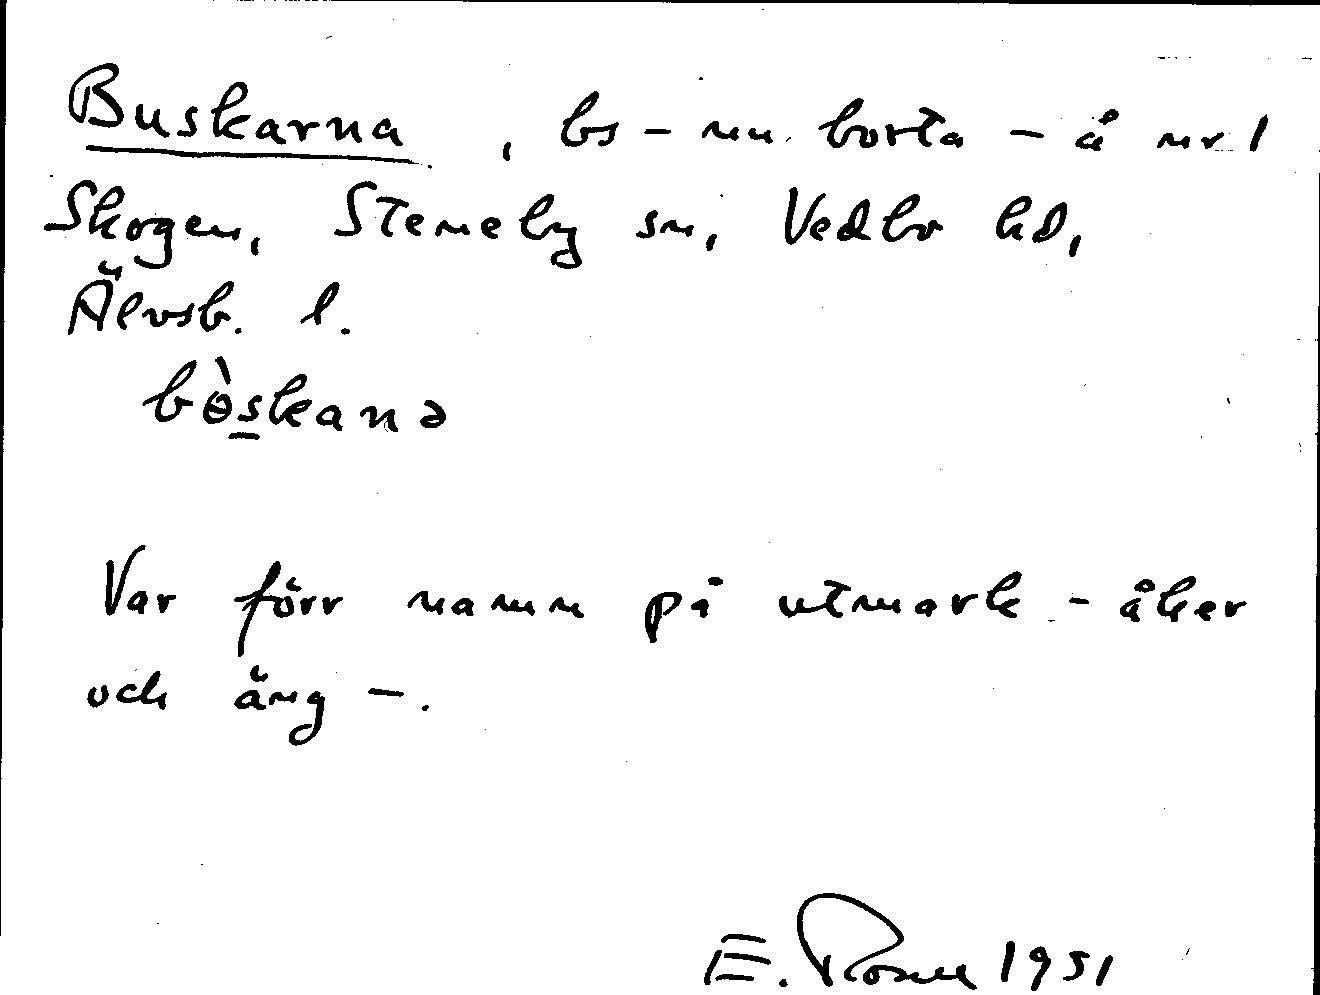 Buskarna, bs – nu borta – å nr 1
Skogen, Steneby sn, Vedbo hd,
Älvsb. l.
bɵ̀s̲kanə
Var förr namn på utmark – åker
och äng –.
E. Rosell 1951